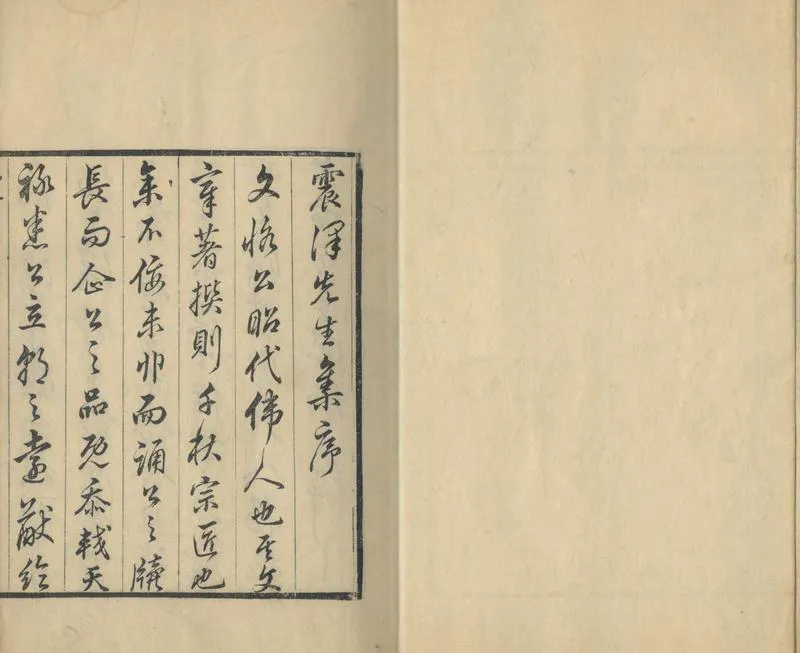 震澤先生集序
文恪公昭代偉人也其文
章著撰則千秋宗匠也
余不佞未丱而誦公之牘
長而企公之品既忝較天
祿悉公立朝之遠猷